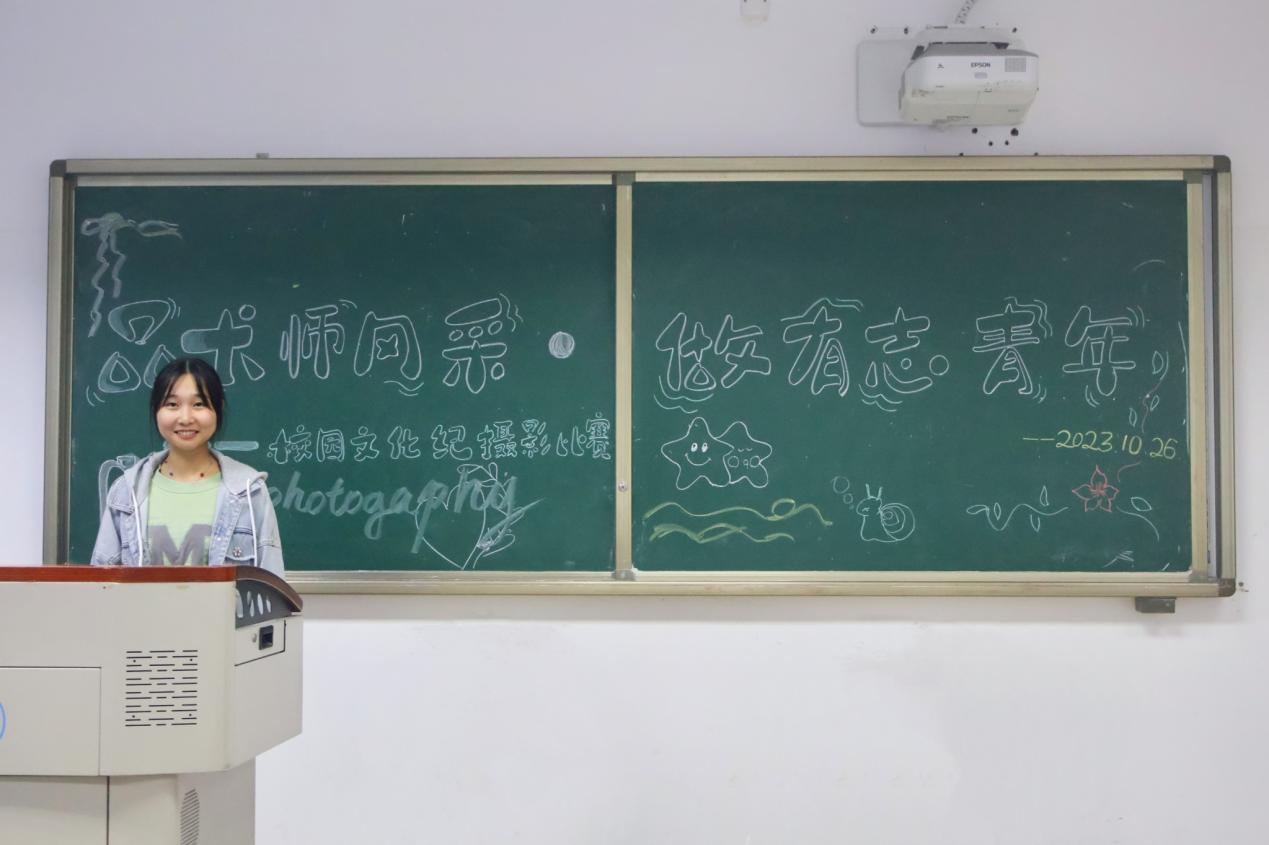 EPSON
品术师风采·
做有志青年
一校园文化纪摄影比赛
photogaphy
—2023.10.26
M